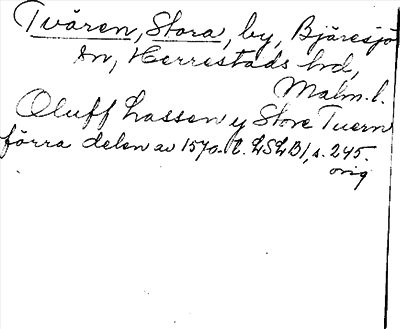 Tvären, Stora, by, Bjäresjö
sn, Herrestads hrd,
Malm. l.
Oluff Lassen y Store Tuern
förra delen av 1570-t. LSLB1, s. 245.
orig